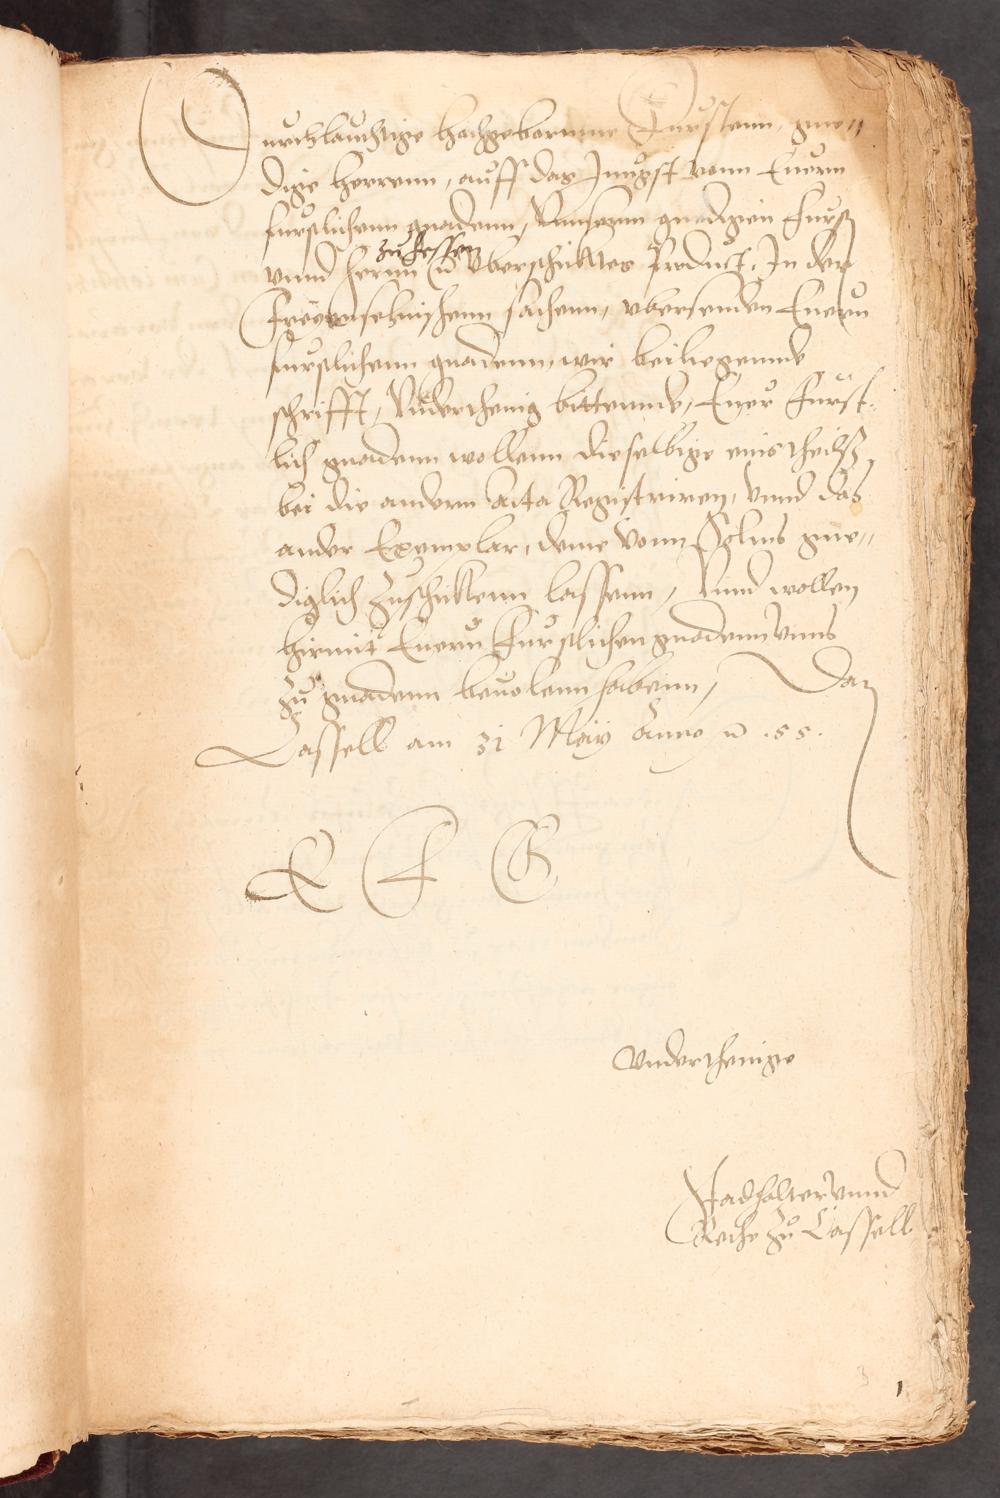 Durchlauchtige hochgebornne Furstenn, gne„
dige herrenn, auff das Jungst vonn Euern
furstlichenn gnadenn, Unnserm gnedigen Furst
zu Hessen
unnd herrn uberschicktes Product, In der
sachenn, ubersenden Euern
furstlichenn gnadenn, wir beiliegennde
schrifft, Underthenig bittennde, Euer Furst-
lich gnadenn wollenn dieselbige eins theilß
bei die andern Acta Registriren, unnd das
ander Exemplar, deme vonn Solms gne„
diglich zuschickenn lassenn, Unnd wollen
hirmit Euern Furstlichen gnadenn unns
zu gnadenn bevolenn habenn, Datum
Cassell am 31 Maij Anno .55.
E F G
Underthenige
Stadhalter unnd
Rethe zu Cassell
3
1